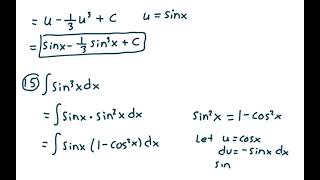 = u - 1/3 u³ + C    u = sinx
= sinx - 1/3 sin³x + C
15 ∫ sin³x dx
= ∫ sinx · sin²x dx    sin²x = 1 - cos²x
= ∫ sinx (1 - cos²x) dx    Let u = cosx
du = -sinx dx
sin